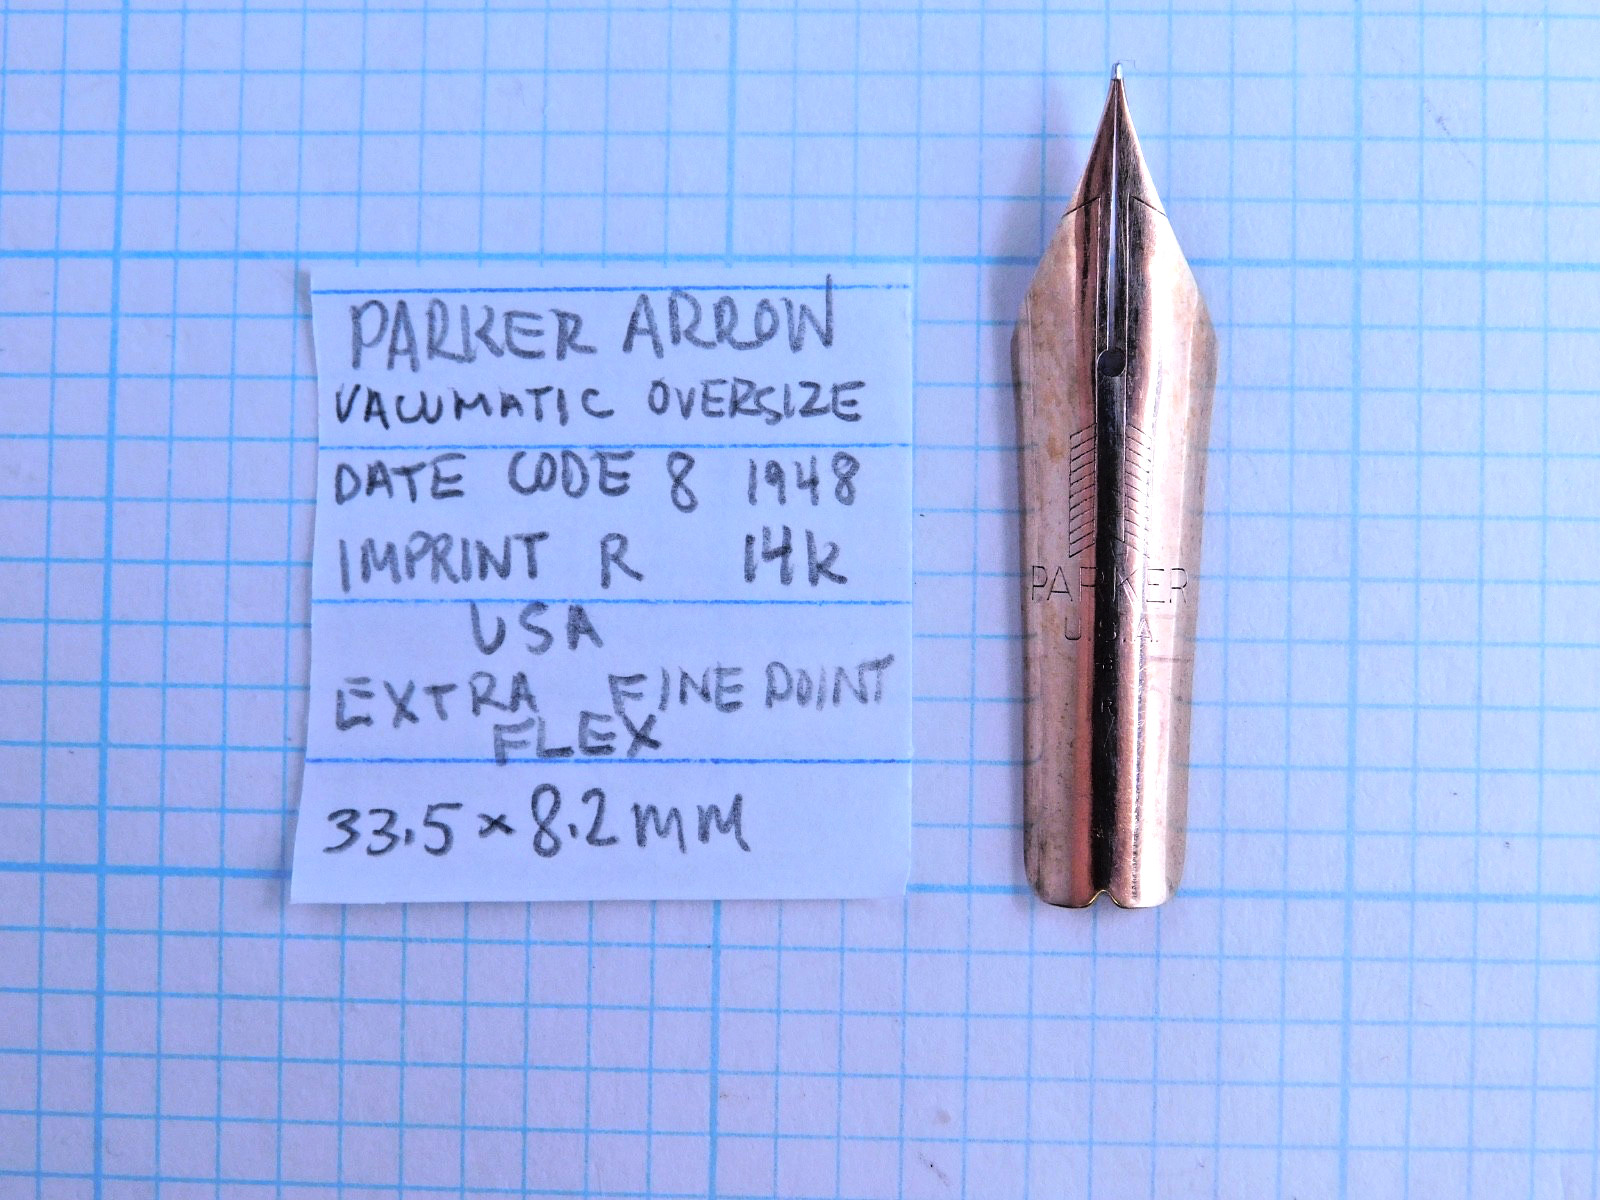 PARKER ARROW
VACUMATIC OVERSIZE
DATE CODE 8 1948
IMPRINT R 14K
USA
EXTRA FINE POINT
FLEX
33.5 × 8.2 mm
PARKER
U.S.A.
R